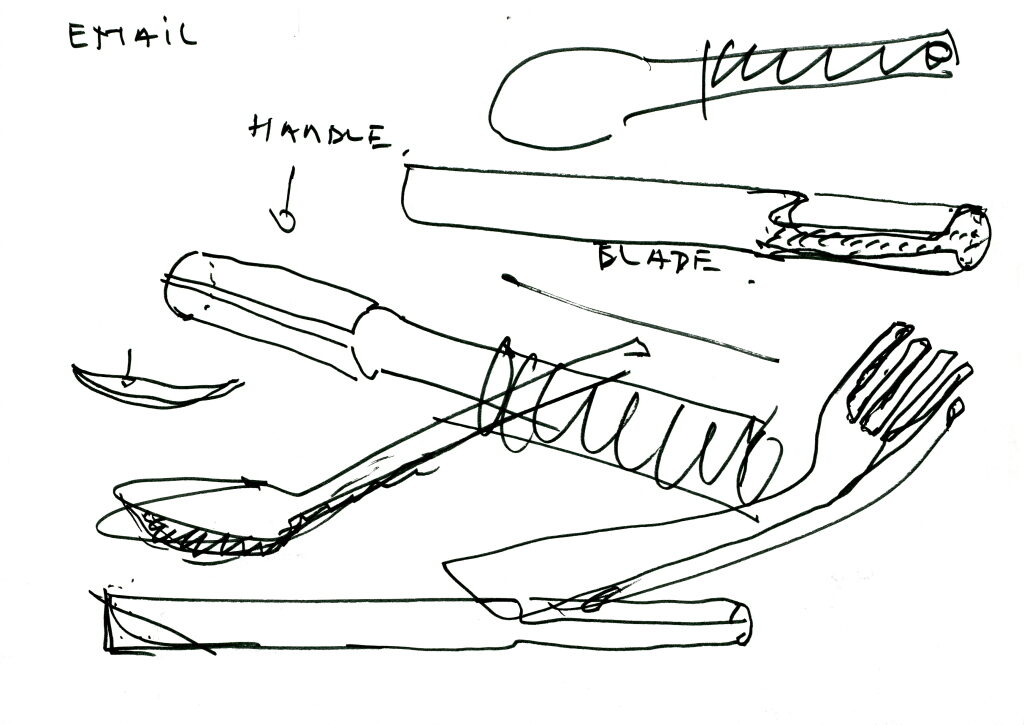 EMAIL
HANDLE
BLADE